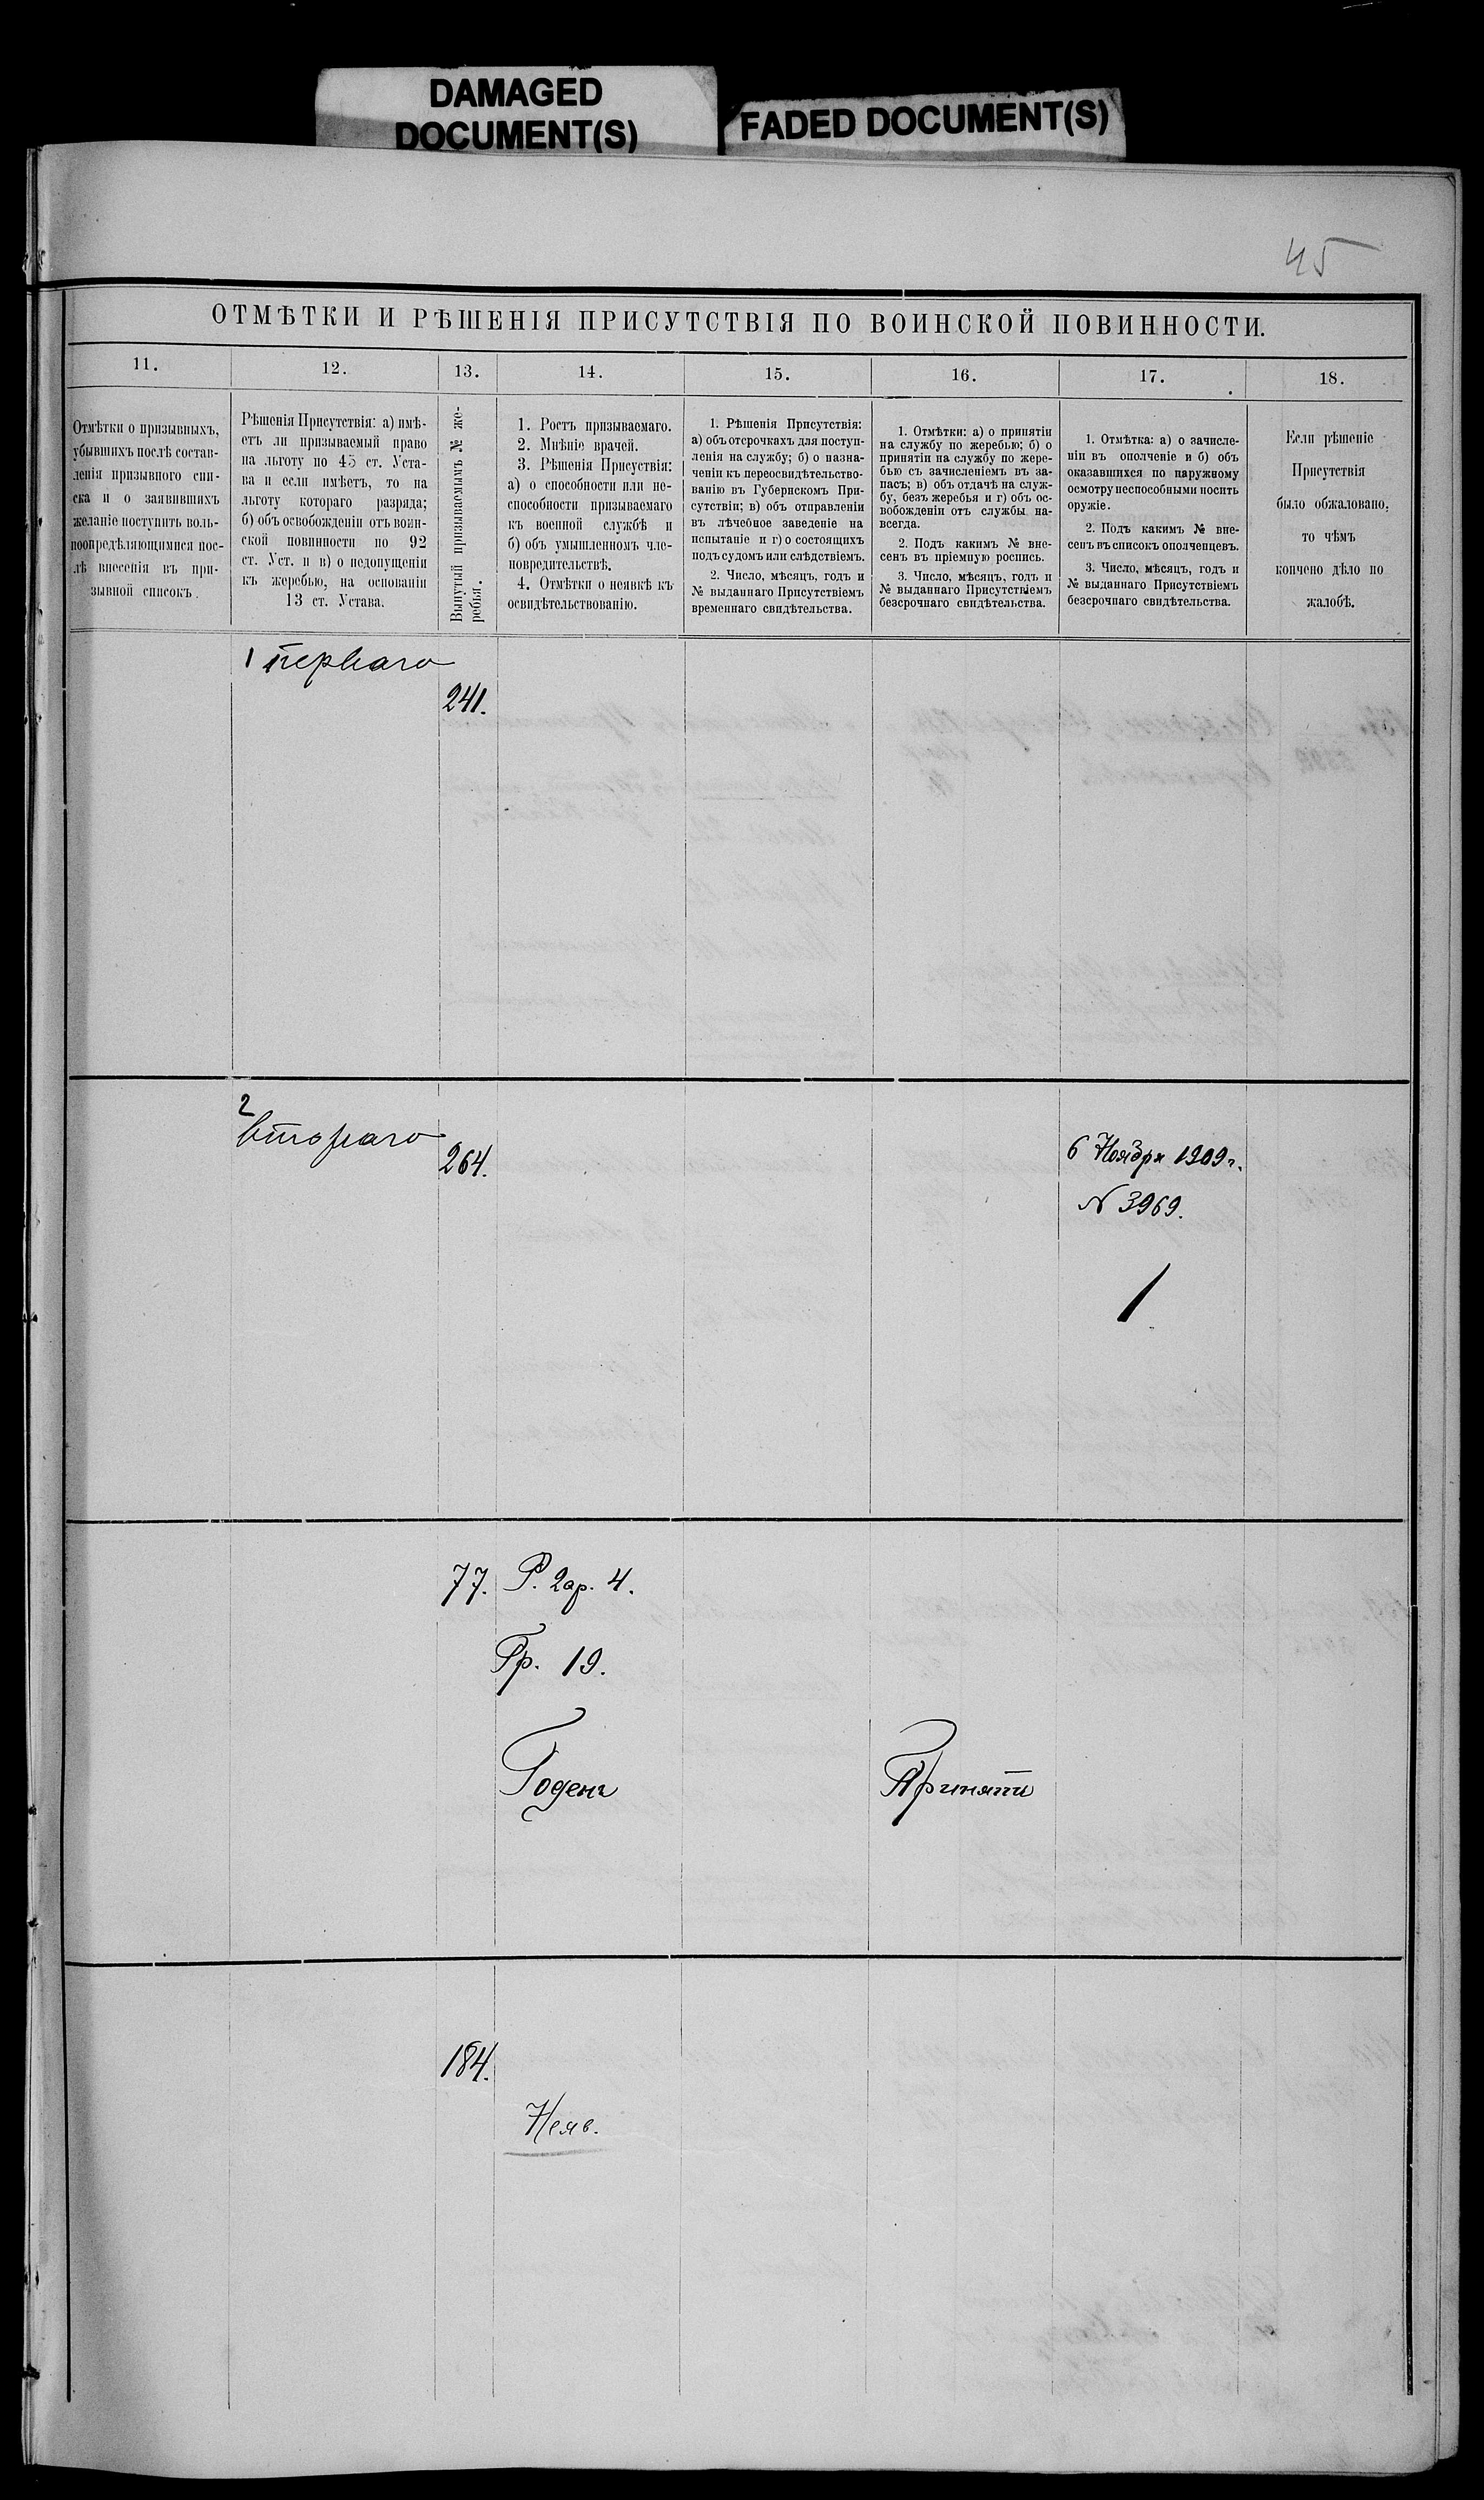 DAMAGED
DOCUMENT(S)
FADED DOCUMENT(S)
45
ОТМѢТКИ И РѢШЕНІЯ ПРИСУТСТВІЯ ПО ВОИНСКОЙ ПОВИННОСТИ.
11.
12.
13.
14.
15.
16.
17.
18.
Отмѣтки о призывныхъ,
убывшихъ послѣ состав-
ленія призывного спи-
ска и о заявившихъ
желаніе поступить воль-
ноопредѣляющимися пос-
лѣ внесенія въ при-
зывной списокъ.
Рѣшенія Присутствія: а) имѣ-
етъ ли призываемый право
на льготу по 45 ст. Уста-
ва и если имѣетъ, то на
льготу котораго разряда;
б) объ освобожденіи отъ воин-
ской повинности по 92
ст. Уст. и в) о недопущеніи
къ жеребью, на основаніи
13 ст. Устава.
Вынутый призываемымъ № же-
ребья.
1. Ростъ призываемаго.
2. Мнѣніе врачей.
3. Рѣшенія Присуствія:
а) о способности или не-
способности призываемаго
къ военной службѣ и
б) объ умышленномъ чле-
новредительствѣ.
4. Отмѣтки о неявкѣ къ
освидѣтельствованію.
1. Рѣшенія Присутствія:
а) объ отсрочкахъ для поступ-
ленія на службу; б) о назна-
ченіи къ переосвидѣтельство-
ванію въ Губернскомъ При-
сутствіи; в) объ отправленіи
въ лѣчебное заведеніе на
испытаніе и г) о состоящихъ
подъ судомъ или слѣдствіемъ.
2. Число, мѣсяцъ, годъ и
№ выданнаго Присутствіемъ
временнаго свидѣтельства.
1. Отмѣтки: а) о принятіи
на службу по жеребью; б) о
принятіи на службу по жере-
бью съ зачисленіемъ въ за-
пасъ; в) объ отдачѣ на служ-
бу, безъ жеребья и г) объ ос-
вобожденіи отъ службы на-
всегда.
2. Подъ какимъ № вне-
сенъ въ пріемную роспись.
3. Число, мѣсяцъ, годъ и
№ выданнаго Присутствіемъ
безсрочнаго свидѣтельства.
1. Отмѣтка: а) о зачисле-
ніи въ ополченіе и б) объ
оказавшихся по наружному
осмотру неспособными носить
оружіе.
2. Подъ какимъ № вне-
сенъ въ списокъ ополченцевъ.
3. Число, мѣсяцъ, годъ и
№ выданнаго Присутствіемъ
безсрочнаго свидѣтельства.
Если рѣшеніе
Присутствія
было обжаловано,
то чѣмъ
кончено дѣло по
жалобѣ.
1 перваго
241.
2
втораго
264.
6 Ноября 1909 г.
N 3969.
1
77.
Р. 2 ар. 4.
Гр. 19.
Годенъ
Принять
184.
Неяв.